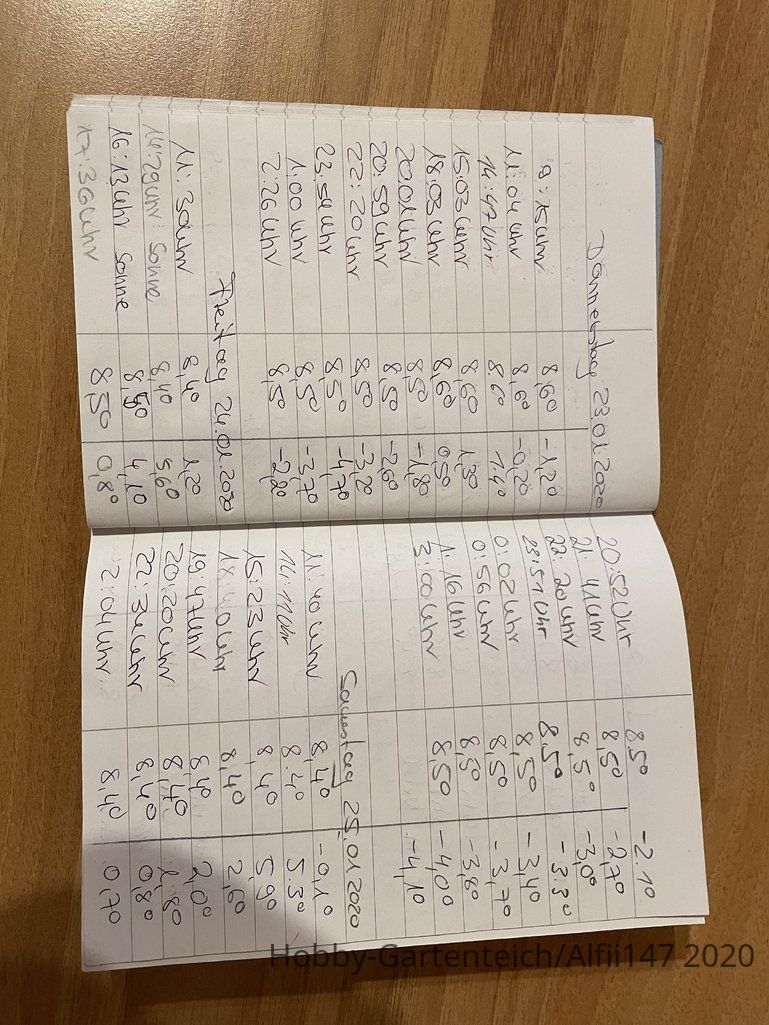 Donnerstag 23.01.2020
9:15 Uhr 8,6° -1,2°
11:04 Uhr 8,6° -0,2°
14:47 Uhr 8.6° 1.4°
15:03 Uhr 8,6° 1,3°
18:03 Uhr 8,6° 0,5°
20:01 Uhr 8,5° -1,8°
20:59 Uhr 8,5° -2,6°
22:20 Uhr 8,5° -3,2°
23:54 Uhr 8,5° -4,7°
1:00 Uhr 8,5° -3,7°
2:26 Uhr 8,5° -2,8°
Freitag 24.01.2020
11:30 Uhr 8,4° 1,2°
14:29 Uhr: Sonne 8,4° 5,6°
16:13 Uhr Sonne 8,5° 4,1°
17:36 Uhr 8,5° 0,8°
20:52 Uhr 8,5° -2.1°
21:41 Uhr 8,5° -2,7°
22:20 Uhr 8,5° -3,0°
23:51 Uhr 8,5° -3.3°
0:02 Uhr 8,5° -3,4°
0:56 Uhr 8,5° -3,7°
1:16 Uhr 8,5° -3,8°
3:00 Uhr 8,5° -4,0°
-4,1°
Samstag 25.01.2020
11:40 Uhr 8,4° -0,1°
14:11 Uhr 8.4° 5.3°
15:23 Uhr 8,4° 5,9°
18:40 Uhr 8,4° 2,6°
19:47 Uhr 8,4° 2,0°
20:20 Uhr 8,4° 1,8°
22:34 Uhr 8,4° 0,8°
2:04 Uhr 8,4° 0,7°
Hobby-Gartenteich/Alfii147 2020